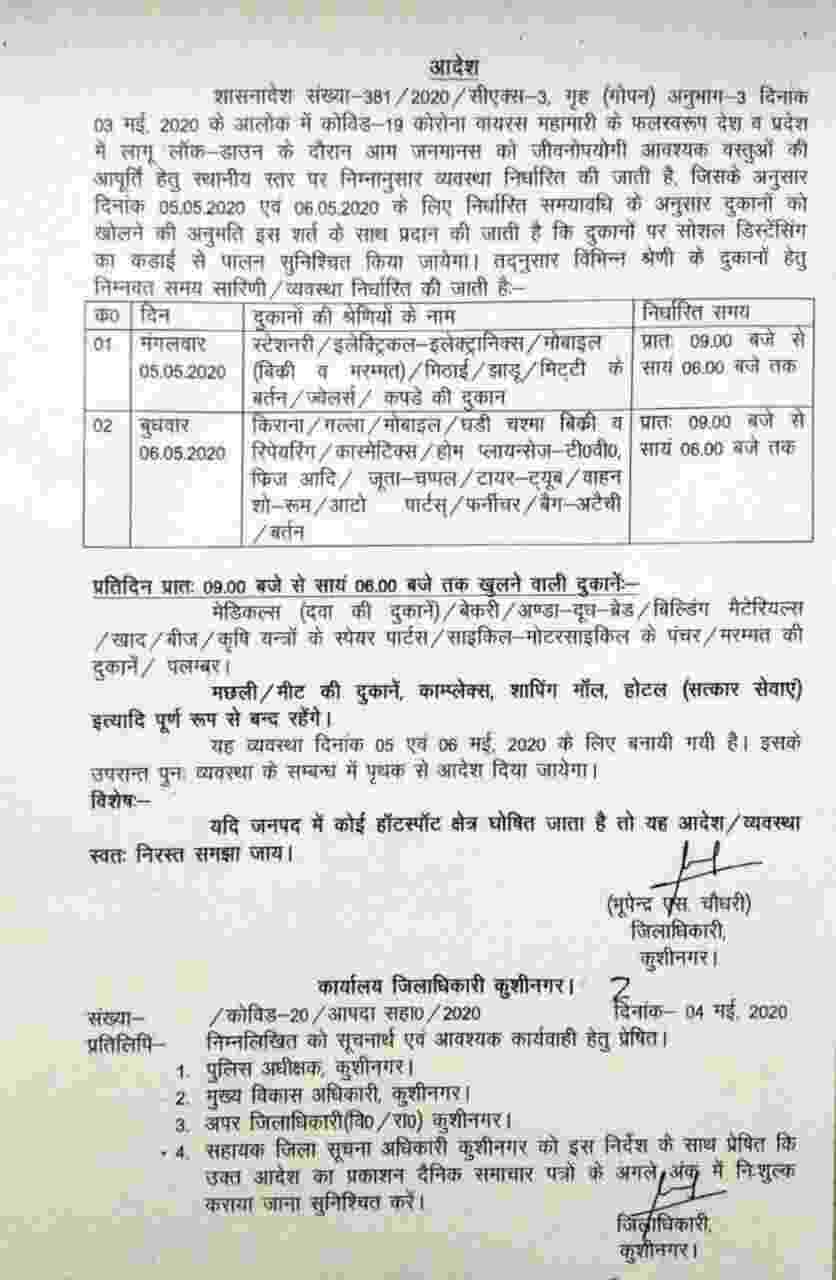 आदेश
शासनादेश संख्या-381/2020/सीएक्स-3, गृह (गोपन) अनुभाग-3 दिनांक
03 मई, 2020 के आलोक में कोविड-19 कोरोना वायरस महामारी के फलस्वरूप देश व प्रदेश
में लागू लॉक-डाउन के दौरान आम जनमानस को जीवनोपयोगी आवश्यक वस्तुओं की
आपूर्ति हेतु स्थानीय स्तर पर निम्नानुसार व्यवस्था निर्धारित की जाती है, जिसके अनुसार
दिनांक 05.05.2020 एवं 06.05.2020 के लिए निर्धारित समयावधि के अनुसार दुकानों को
खोलने की अनुमति इस शर्त के साथ प्रदान की जाती है कि दुकानों पर सोशल डिस्टेंसिंग
का कडाई से पालन सुनिश्चित किया जायेगा। तद्नुसार विभिन्न श्रेणी के दुकानों हेतु
निम्नवत समय सारिणी/व्यवस्था निर्धारित की जाती है:-
क0 दिन दुकानों की श्रेणियों के नाम निर्धारित समय
01 मंगलवार स्टेशनरी/इलेक्ट्रिकल-इलेक्ट्रानिक्स/मोबाइल प्रातः 09.00 बजे से
05.05.2020 (बिकी व मरम्मत)/मिठाई/झाडू/मिट्टी के सायं 06.00 बजे तक
बर्तन/ज्वेलर्स/ कपडे की दुकान
02 बुधवार किराना/गल्ला/मोबाइल/घडी चश्मा बिकी व प्रातः 09.00 बजे से
06.05.2020 रिपेयरिंग/कास्मेटिक्स/होम प्लायन्सेज-टी0वी0, सायं 06.00 बजे तक
फिज आदि/ जूता-चप्पल/टायर-ट्यूब/वाहन
शो-रूम/आटो पार्टस्/फर्नीचर/बैग-अटैची
/बर्तन
प्रतिदिन प्रातः 09.00 बजे से सायं 06.00 बजे तक खुलने वाली दुकानेंः-
मेडिकल्स (दवा की दुकानें)/बेकरी/अण्डा-दूध-ब्रेड/बिल्डिंग मैटेरियल्स
/खाद/बीज/कृषि यन्त्रों के स्पेयर पार्टस/साइकिल-मोटरसाइकिल के पंचर/मरम्मत की
दुकानें/ पलम्बर।
मछली/मीट की दुकानें, काम्प्लेक्स, शापिंग मॉल, होटल (सत्कार सेवाएं)
इत्यादि पूर्ण रूप से बन्द रहेंगे।
यह व्यवस्था दिनांक 05 एवं 06 मई, 2020 के लिए बनायी गयी है। इसके
उपरान्त पुनः व्यवस्था के सम्बन्ध में पृथक से आदेश दिया जायेगा।
विशेषः-
यदि जनपद में कोई हॉटस्पॉट क्षेत्र घोषित जाता है तो यह आदेश/व्यवस्था
स्वतः निरस्त समझा जाय।
(भूपेन्द्र एस. चौधरी)
जिलाधिकारी,
कुशीनगर।
कार्यालय जिलाधिकारी कुशीनगर।
संख्या- /कोविड-20/आपदा सहा0/2020 दिनांक- 04 मई, 2020
प्रतिलिपि- निम्नलिखित को सूचनार्थ एवं आवश्यक कार्यवाही हेतु प्रेषित।
1. पुलिस अधीक्षक, कुशीनगर।
2. मुख्य विकास अधिकारी, कुशीनगर।
3. अपर जिलाधिकारी(वि0/रा0) कुशीनगर।
4. सहायक जिला सूचना अधिकारी कुशीनगर को इस निर्देश के साथ प्रेषित कि
उक्त आदेश का प्रकाशन दैनिक समाचार पत्रों के अगले अंक में निःशुल्क
कराया जाना सुनिश्चित करें।
जिलाधिकारी,
कुशीनगर।